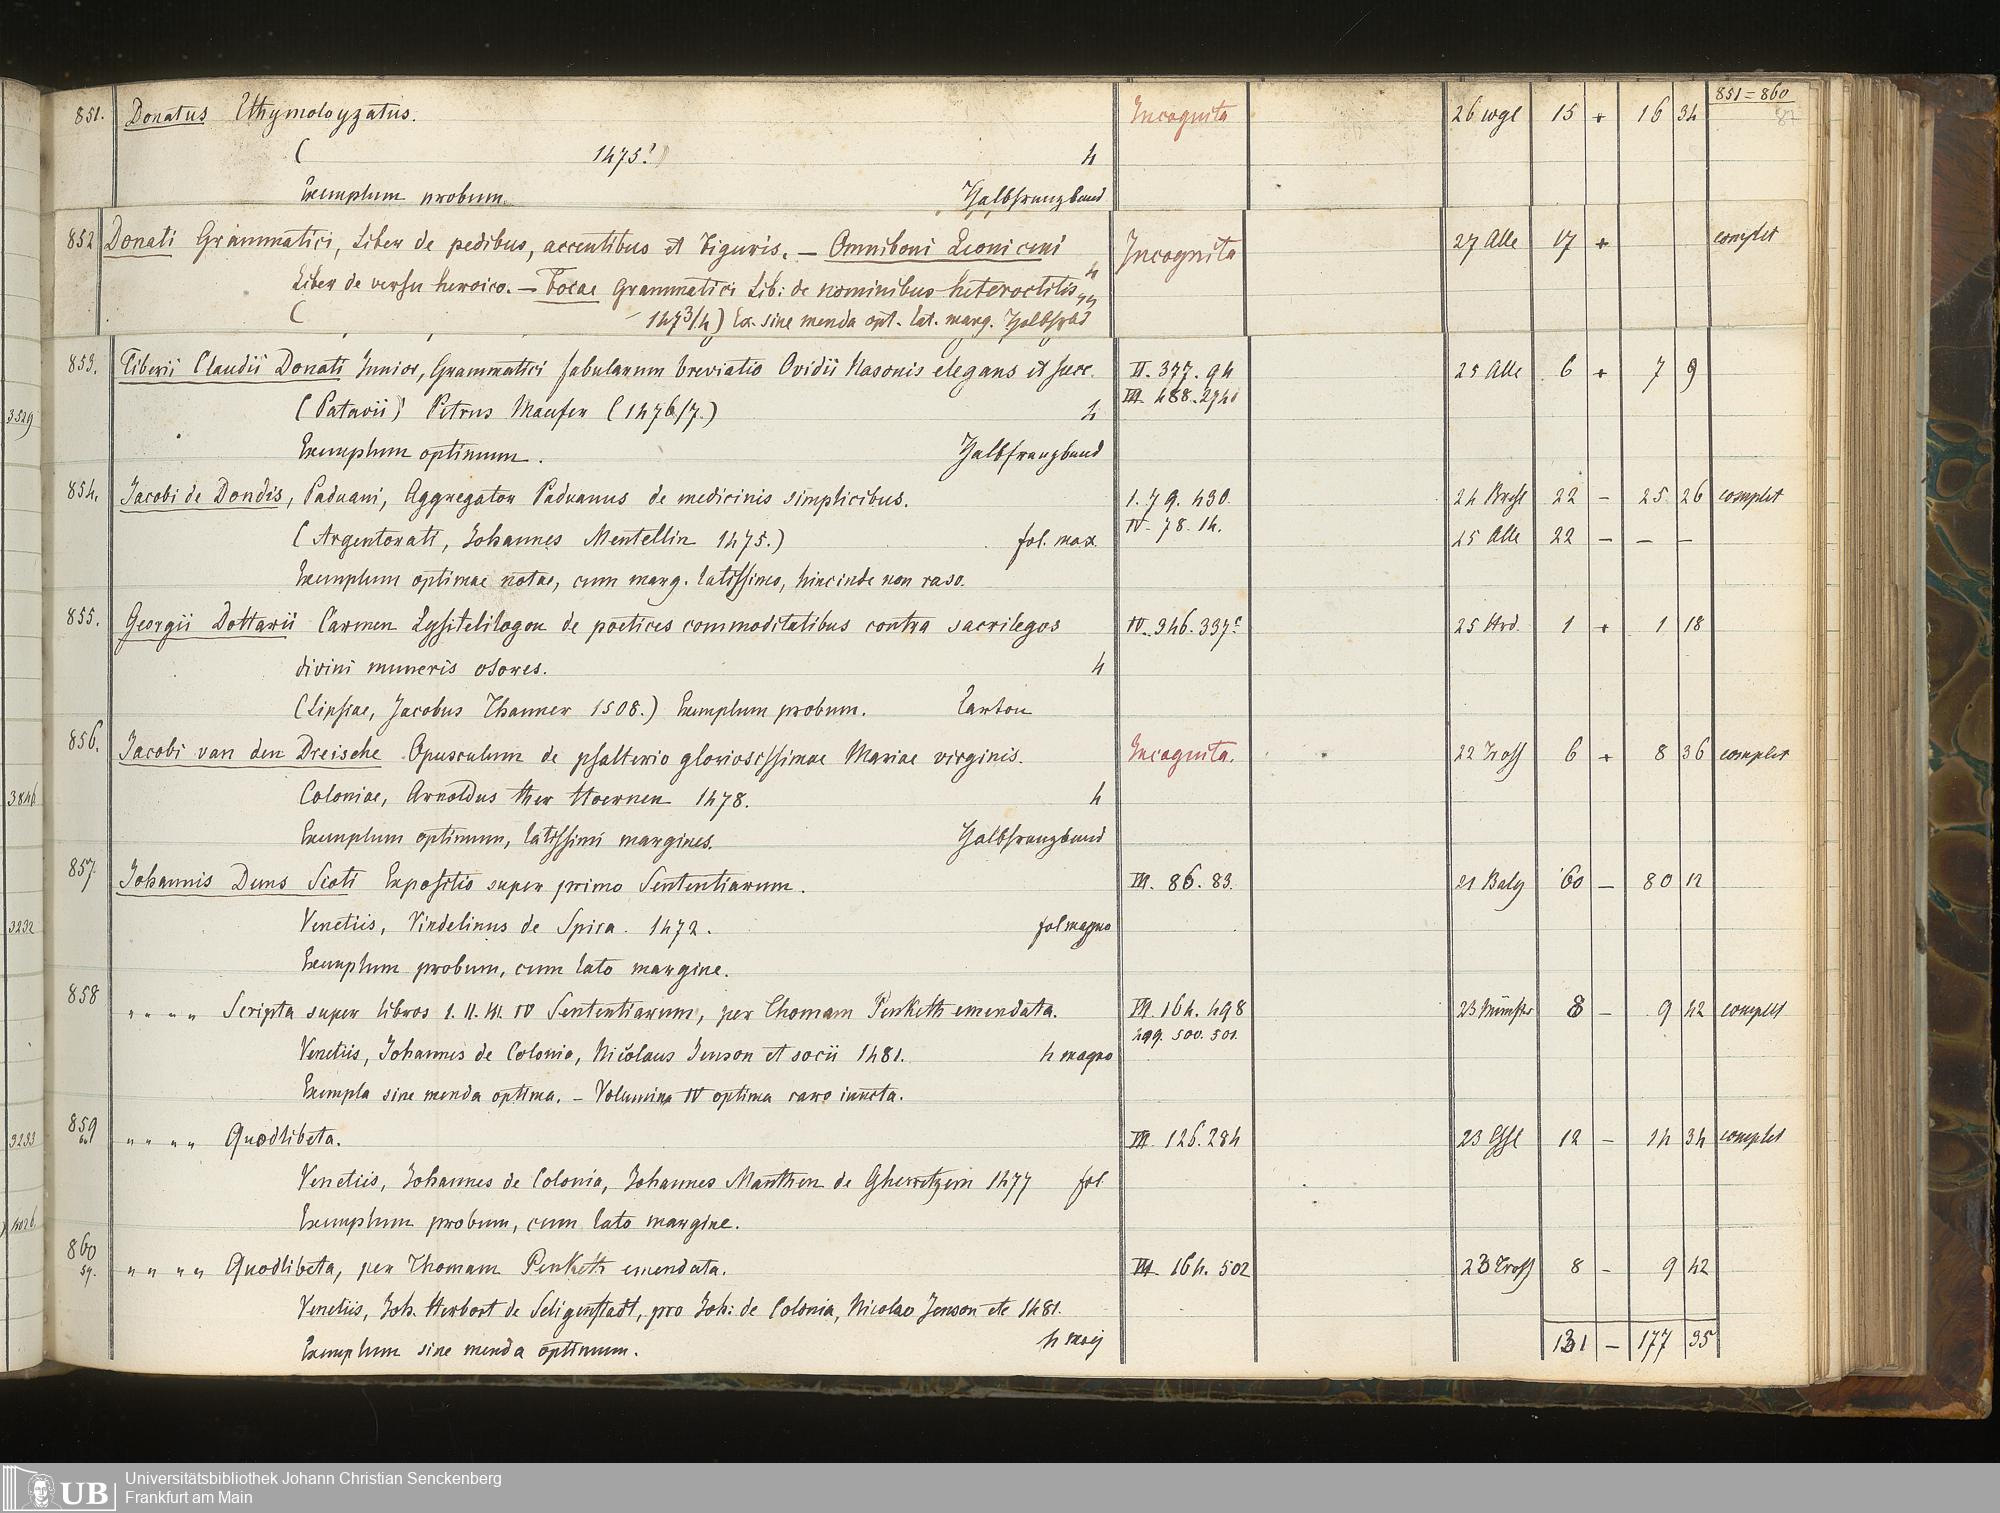 851 = 860
87
851. Donatus Ethymoloyzatus. Incognita 26 wgl 15 + 16 34
( 1475!) 4
Exemplum probum. Halbfranzband
852 Donati Grammatici, Liber de pedibus, accentibus et figuris. — Omniboni Leoniceni Incognita 27 Alle 17 + complet
Liber de versu heroico. — Focae Grammatici Lib: de nominibus heteroclitis 4
( 1473/4) Ex. sine menda opt. lat. marg. Halbfrbd
853. Tiberii Claudii Donati Junior, Grammatici fabularum breviatio Ovidii Nasonis elegans et succ. II. 377. 94 25 Alle 6 + 7 9
III. 488. 2940
3529
(Patavii) Petrus Maufer (1476/7.) 4
Exemplum optimum. Halbfranzband
854. Jacobi de Dondis, Paduani, Aggregator Paduanus de medicinis simplicibus. I. 79. 430. 24 Bresl 22 — 25 26 complet
IV. 78. 14.
(Argentorati, Johannes Mentellin 1475.) fol. max. 25 Alle 22 — — —
Exemplum optimae notae, cum marg. latissimo, hincinde non raso.
855. Georgii Dottarii Carmen Lysitelilogon de poetices commoditatibus contra sacrilegos IV. 346. 337c 25 Hrd. 1 + 1 18
divini muneris osores. 4
(Lipsiae, Jacobus Thanner 1508.) Exemplum probum. Carton
856. Jacobi van den Dreische Opusculum de psalterio gloriosissimae Mariae virginis. Incognita. 22 Tross 6 + 8 36 complet
3846
Coloniae, Arnoldus ther Hoernen 1478. 4
Exemplum optimum, latissimi margines. Halbfranzband
857. Johannis Duns Scoti Expositio super primo Sententiarum. III. 86. 83. 21 Balg 60 — 80 12
3232
Venetiis, Vindelinus de Spira. 1472. fol magno
Exemplum probum, cum lato margine.
858 " " " " Scripta super libros I. II. III. IV Sententiarum, per Thomam Penketh emendata. III. 164. 498 23 Münster 8 — 9 42 complet
499. 500. 501.
Venetiis, Johannes de Colonia, Nicolaus Jenson et socii 1481. 4 magno
Exempla sine menda optima. — Volumina IV optima raro iuncta.
859 " " " " Quodlibeta. III. 126. 284 23 Essl 12 — 14 34 complet
3233
Venetiis, Johannes de Colonia, Johannes Manthen de Gherretzem 1477 fol
Exemplum probum, cum lato margine.
860 " " " " Quodlibeta, per Thomam Penketh emendata. III. 164. 502 23 Tross 8 — 9 42
Venetiis, Joh. Herbort de Seligenstadt, pro Joh: de Colonia, Nicolao Jenson etc 1481.
Exemplum sine menda optimum. 4 maj
131 — 177 35
UB Universitätsbibliothek Johann Christian Senckenberg
Frankfurt am Main